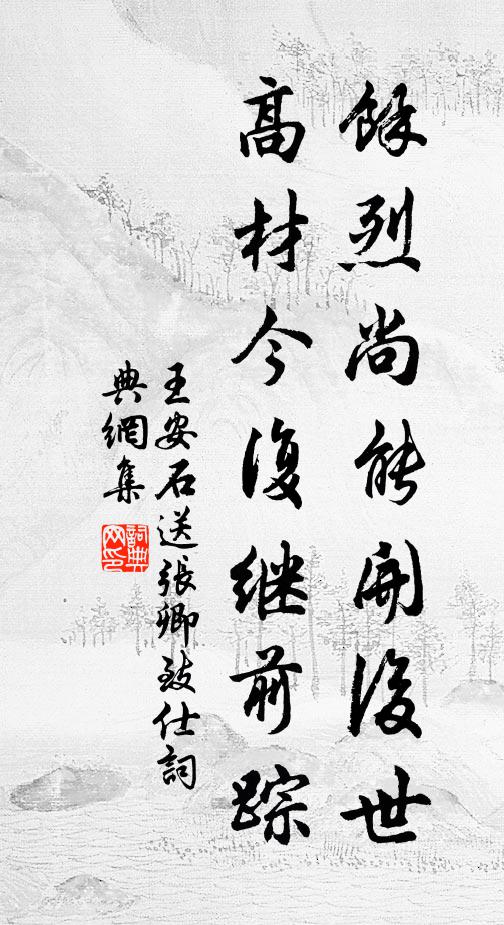 餘烈尚能開後世
高材今復继前踪
王安石送張卿致仕詞
典網集
詞典网印